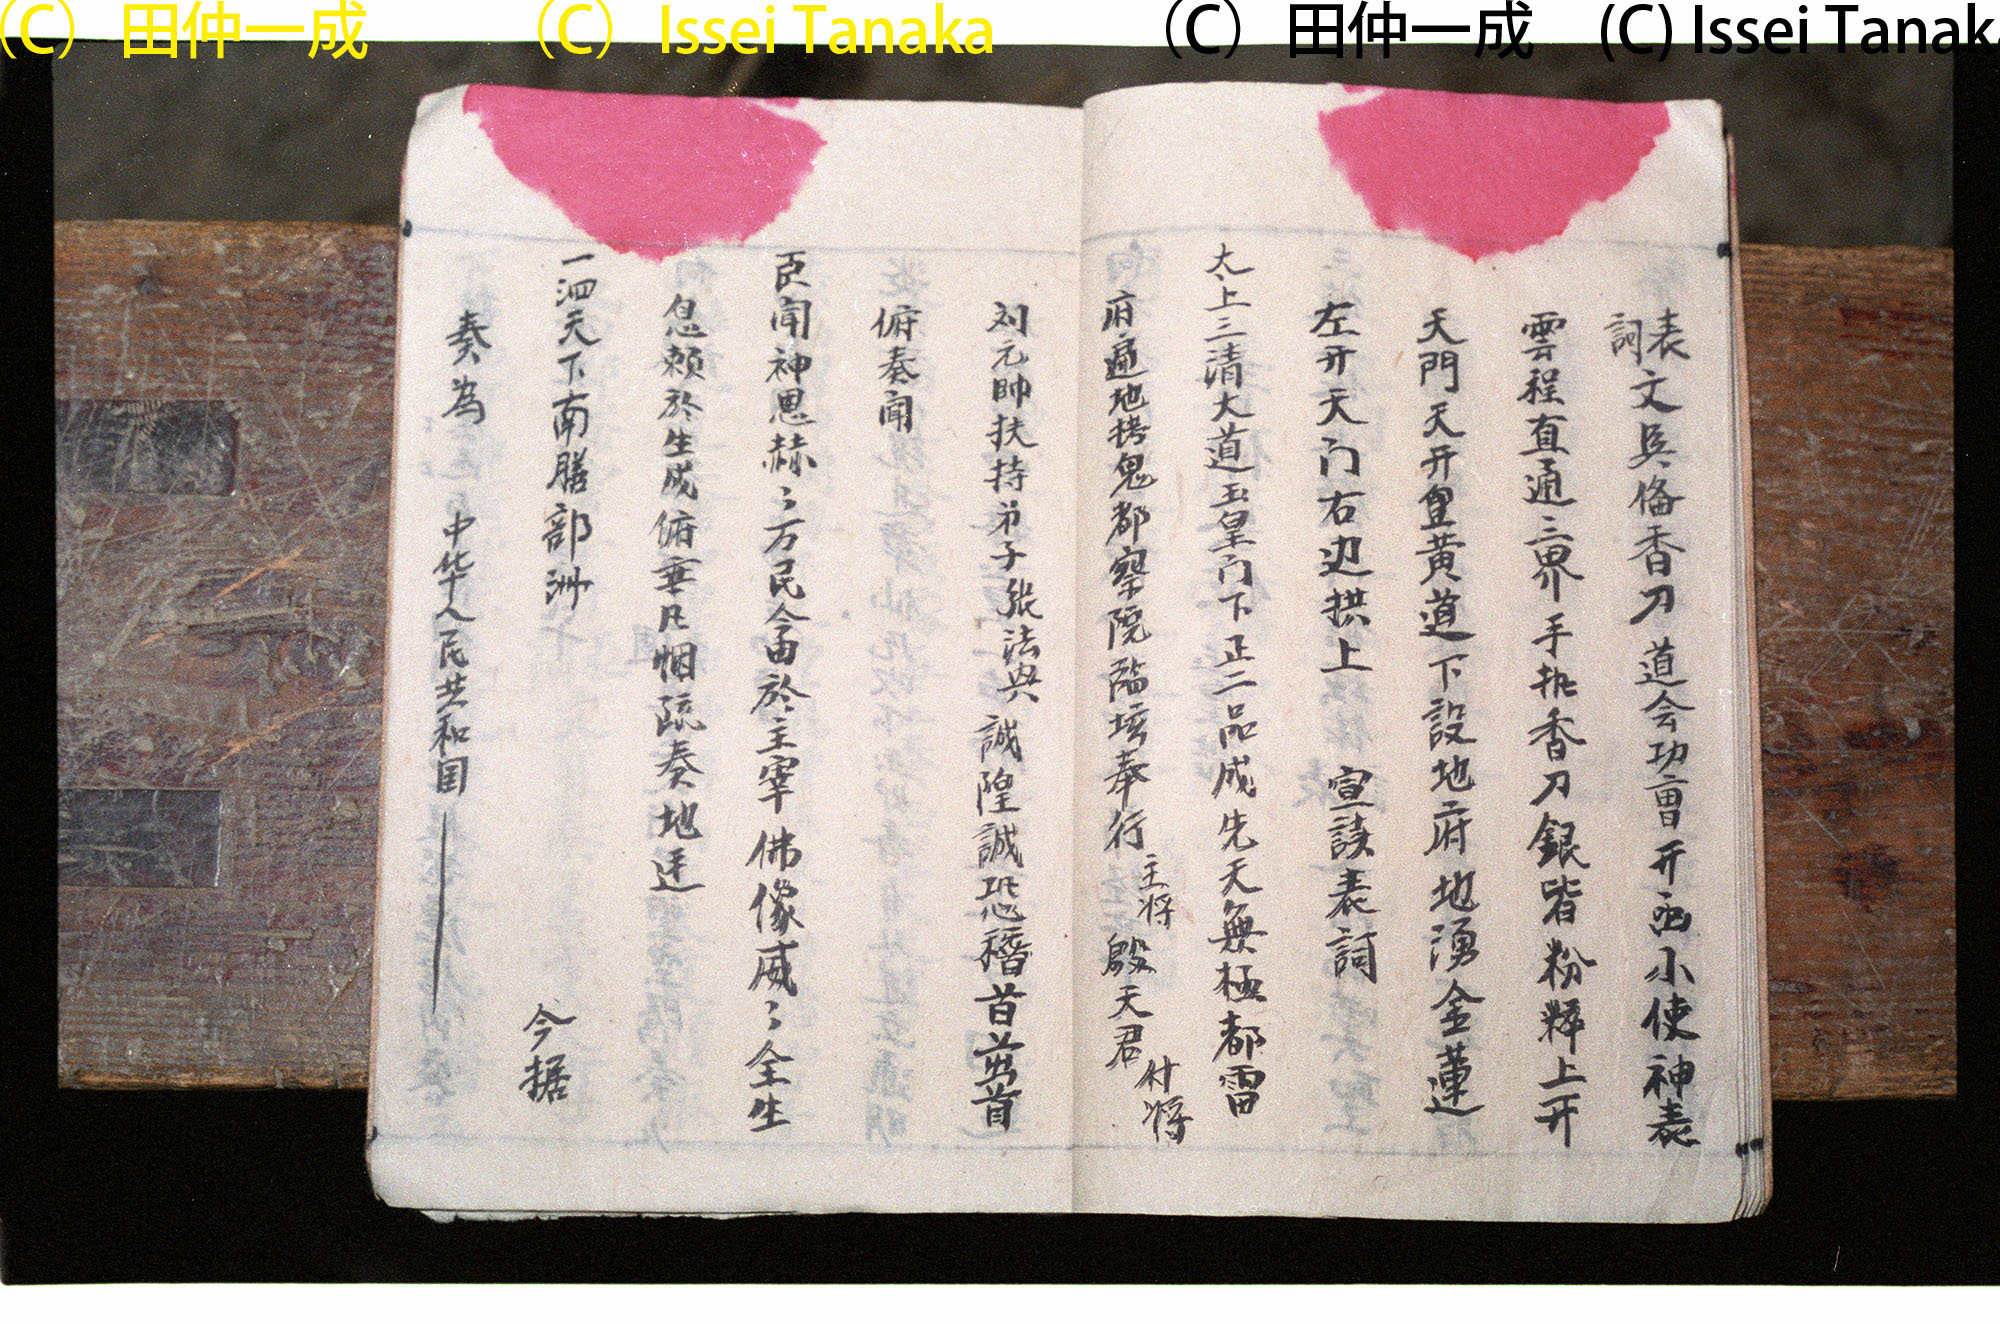 (C) 田仲一成 (C) Issei Tanaka (C) 田仲一成 (C) Issei Tanaka
表詞文呉俻香刀 道会功曺开函小使神表
雲程直通三界手执香刀銀皆粉粹上开
天門天开皇黄道下設地府地湧金蓮
左开天门右边拱上 宣読表詞
太上三清大道玉皇门下正二品成先天無極都雷
府遍地拷鬼都察院臨坛奉行主将殷天君付将
刘元帅扶持弟子張法典 誠隍誠恐稽首首
俯奏闻
臣闻神恩赫〻万民今由於主宰佛像威〻全生
息赖於生成俯垂凡烟疏奏地迋
一泗天下南膳部洲 今据
奏為 中华人民共和国